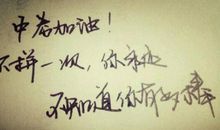 中考加油！
不拼一次，你永远
不知道你有多棒